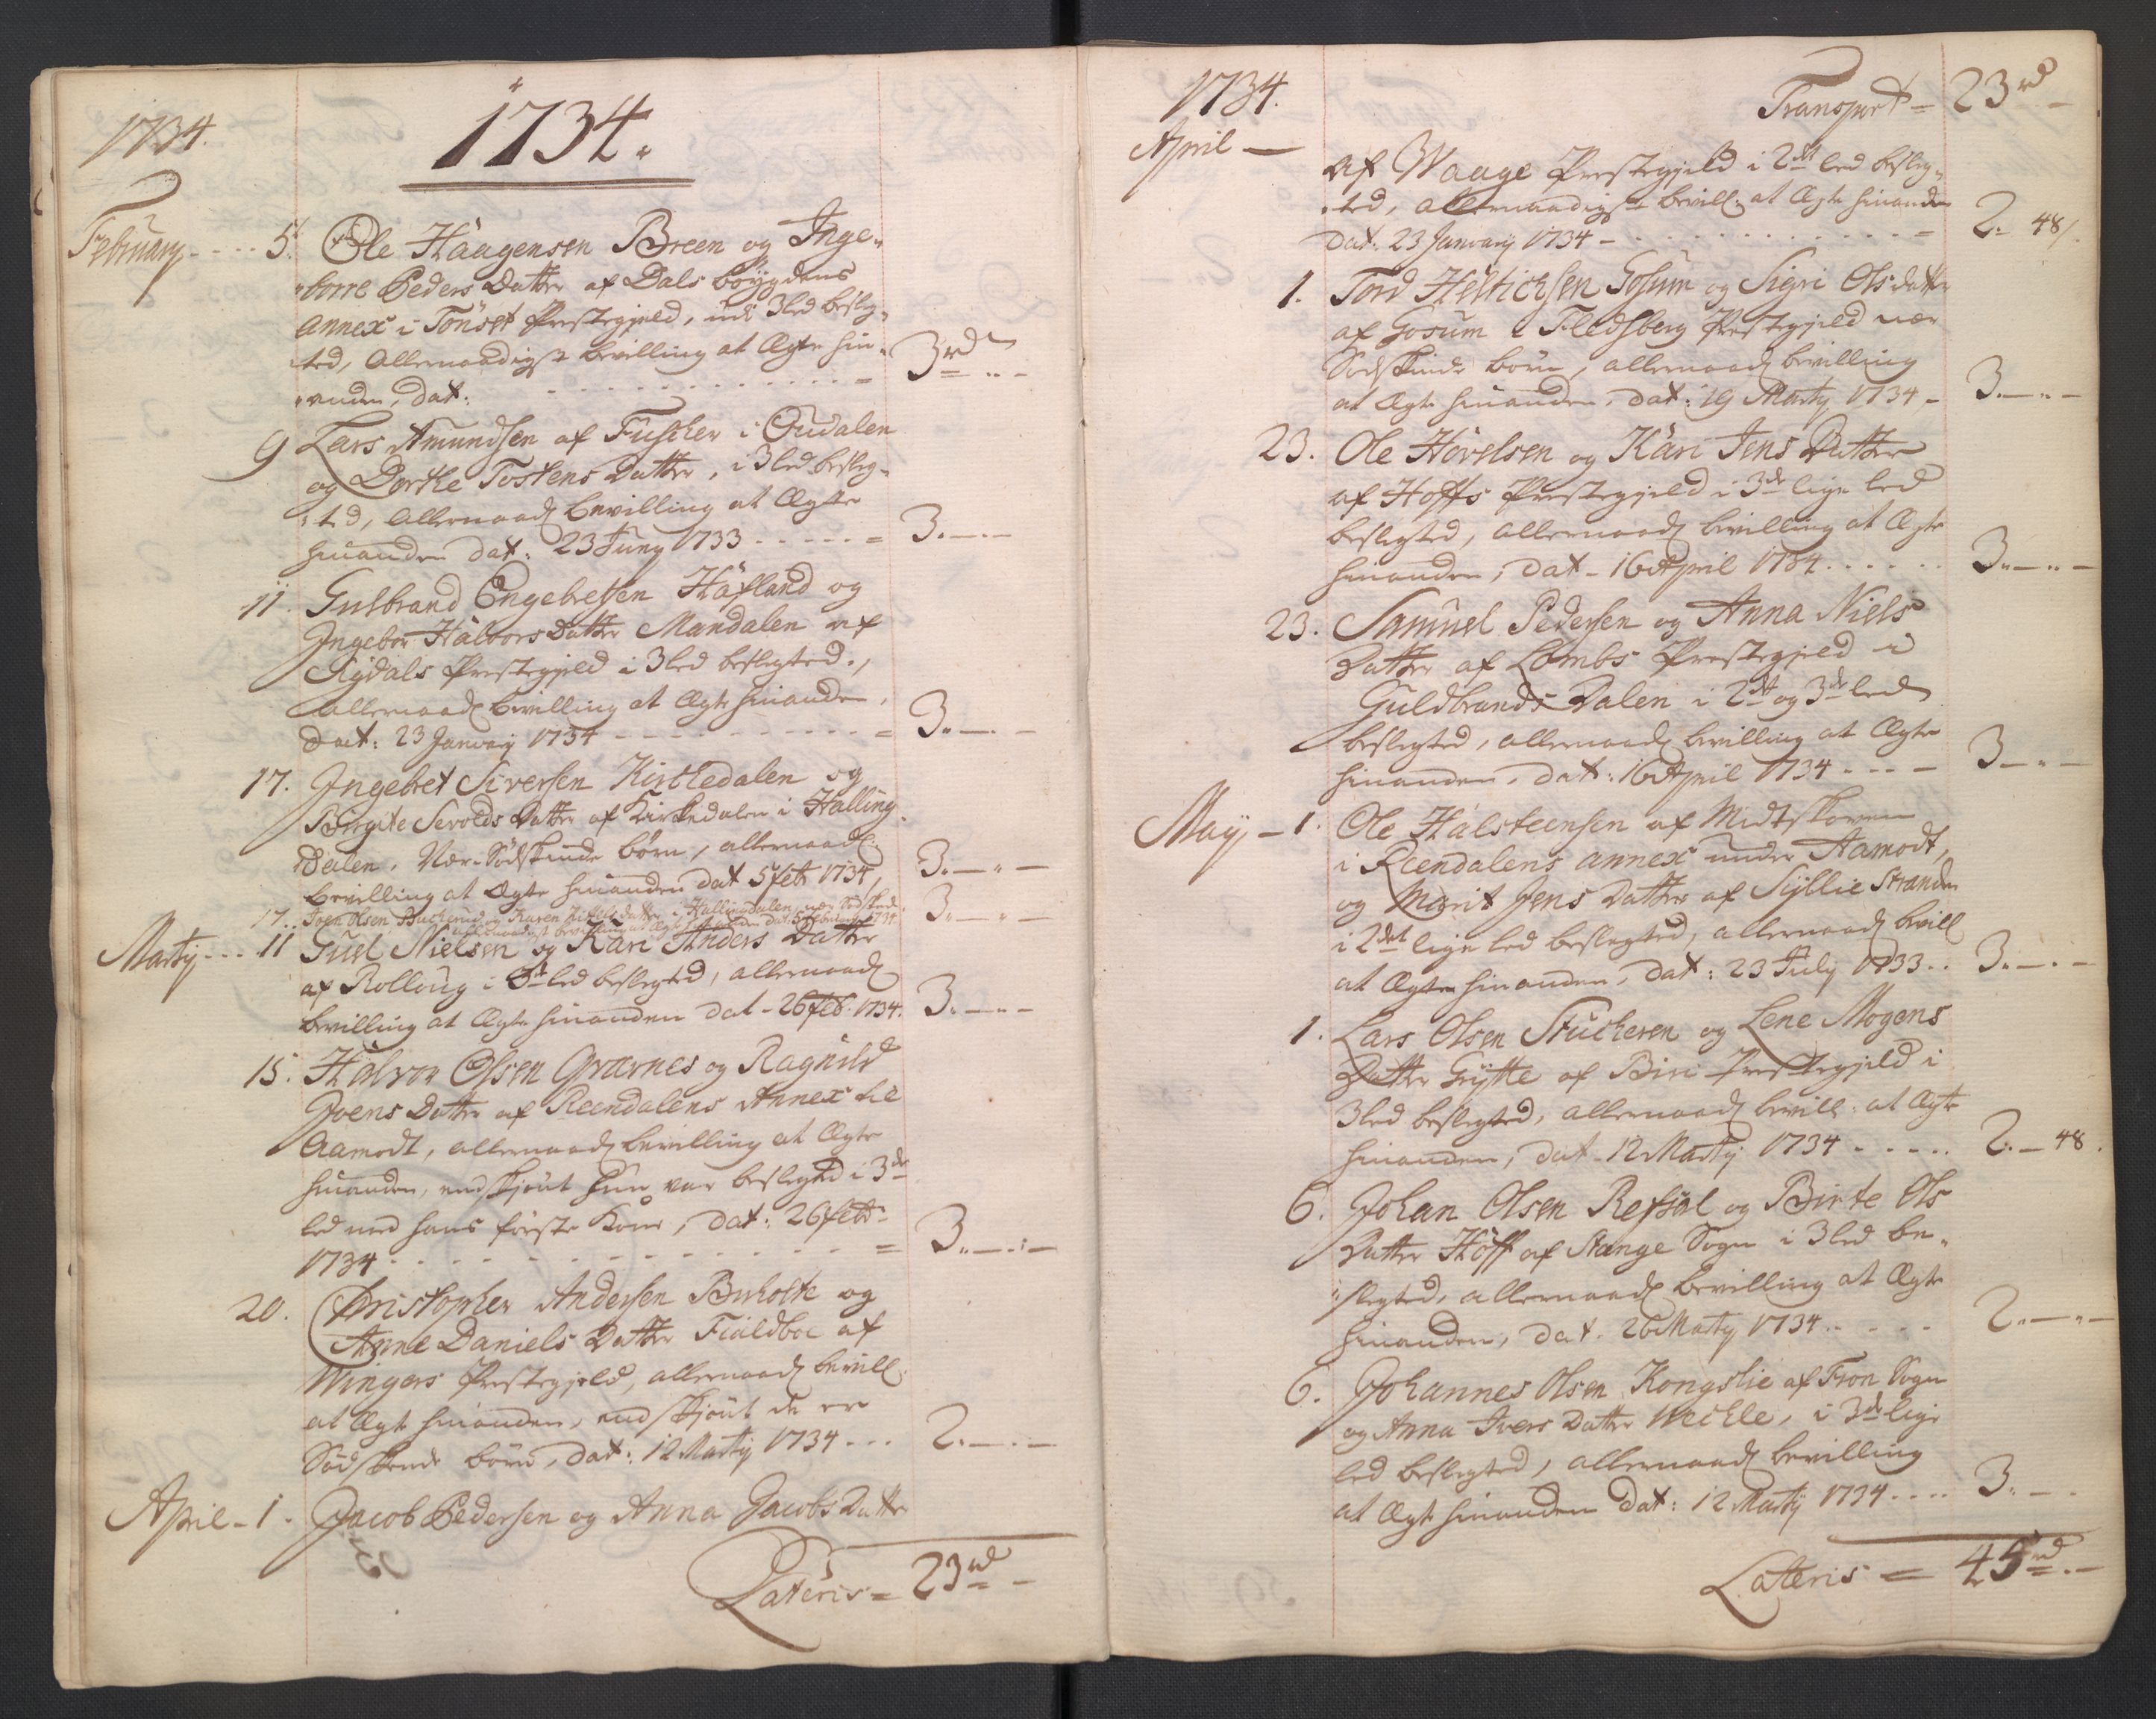 1734.
1734.
February - - - - 5. Ole Haagensen Breen og Inge-
borre Peders Datter af Dals böygdens
Annex i Tönset Prestegjeld, udi 3 led besleg-
ted, Allernaadigst bevilling at Ægte hin-
anden, dat: - - - - - = 3 rd
9 Lars Amundsen af Fuscher i Oudalen
og Dorthe Tostens Datter, i 3 led besleg-
ted, Allernaad bevilling at Ægte
hinanden dat: 23 Juny 1733 - - - - - = 3. - - -
11. Gulbrand Engebretsen Hafland og
Ingebor Halvors Datter Mandalen af
Rigdals Prestegjeld i 3 led beslegted,
allernaad bevilling at Ægte hinanden,
Dat: 23 January 1734 - - - - - = 3. - - -
17. Ingebret Siversen Kirchedalen og
Birgite Sevolds Datter af Kirkedalen i Halling-
Dalen. Nær-Södskinde börn, allernaad:
bevilling at Ægte hinanden dat 5 febr 1734, 3. - - -
17. Iver Olsen og Karen Datter i Hallingdalen nær Södskend
allernaadigst bevilling at Ægte hinanden Dat 5 February 1734. 3. - - -
Marty - - - 11 Guel Nielsen og Kari Anders Datter
af Rolloug i 3 led beslegted, allernaad
bevilling at Ægte hinanden dat - 26 feb. 1734. 3. - - -
15. Halvor Olsen Qvarnes og Ragnild
Joens Datter af Reendalens Annex til
Aamodt, allernaad bevilling at Ægte
hinanden, endskjönt hun var beslegted i 3de
led med hans förste Kone, dat: 26 febr
1734 - - - - - = 3. - - -
20. Christopher Andersen Buholte og
Anne Daniels Datter Fieldboe af
Wingers Prestegjeld, allernaad bevill.
at Ægte hinanden, endskjönt de er
Södskende börn, dat: 12 Marty 1734 - - - 2. - - -
April - 1. Jacob Pedersen og Anna Jacobs Datter
Lateris = 23 rd -
1734. Transport = 23 rd -
April -
af Waage Prestegjeld i 2det led besleg-
ted, allernaadigst bevill: at Ægte hinanden
Dat. 23 January 1734 - - - - - = 2. 48 /.
1. Tord Helticksen Gosum og Sigri Ols datter
af Gosum i Fledsberg Prestegjeld nær
Södskinde börn, allernaad bevilling
at Ægte hinanden, dat: 19 Marty 1734 - 3. - - -
23. Ole Hövelsen og Kari Jens Datter
af Hoffs Prestegjeld i 3de lige led
beslegted, allernaad bevilling at Ægte
hinanden, dat - 16 April 1734. - - - - 3. - - -
23. Samuel Pedersen og Anna Niels
Datter af Lombs Prestegjeld i
Guldbrands Dalen i 2det og 3de led
beslegted, allernaad bevilling at Ægte
hinanden, dat: 16 April 1734 - - - 3. - - -
May - 1. Ole Halsteensen af Midtskoven
i Reendalens annex under Aamodt,
og Marit Jens Datter af Syllie Stranden
i 2det lige led beslegted, allernaad bevill
at Ægte hinanden, dat: 23 July 1733 - - 3. - - -
1. Lars Olsen Stucheren og Lene Mogens
Datter Grÿtte af Biri Prestegjeld i
3 led beslegted, allernaad bevill: at Ægte
hinanden, dat - 12 Marty 1734 - - - - 2. - 48.
6. Johan Olsen Refsal og Birte Ols
Datter Hoff af Stange Sogn i 3 led be-
slegted, allernaad bevilling at Ægte
hinanden, dat. 26 Marty 1734. - - - - 2. - - -
6. Johannes Olsen Kongslie af Fron Sogn
og Anna Ivers Datter Weckle, i 3de lige
led beslegted, allernaad bevilling
at Ægte hinanden dat: 12 Marty 1734. - - - 3. - - .
Lateris = 45 rd. -